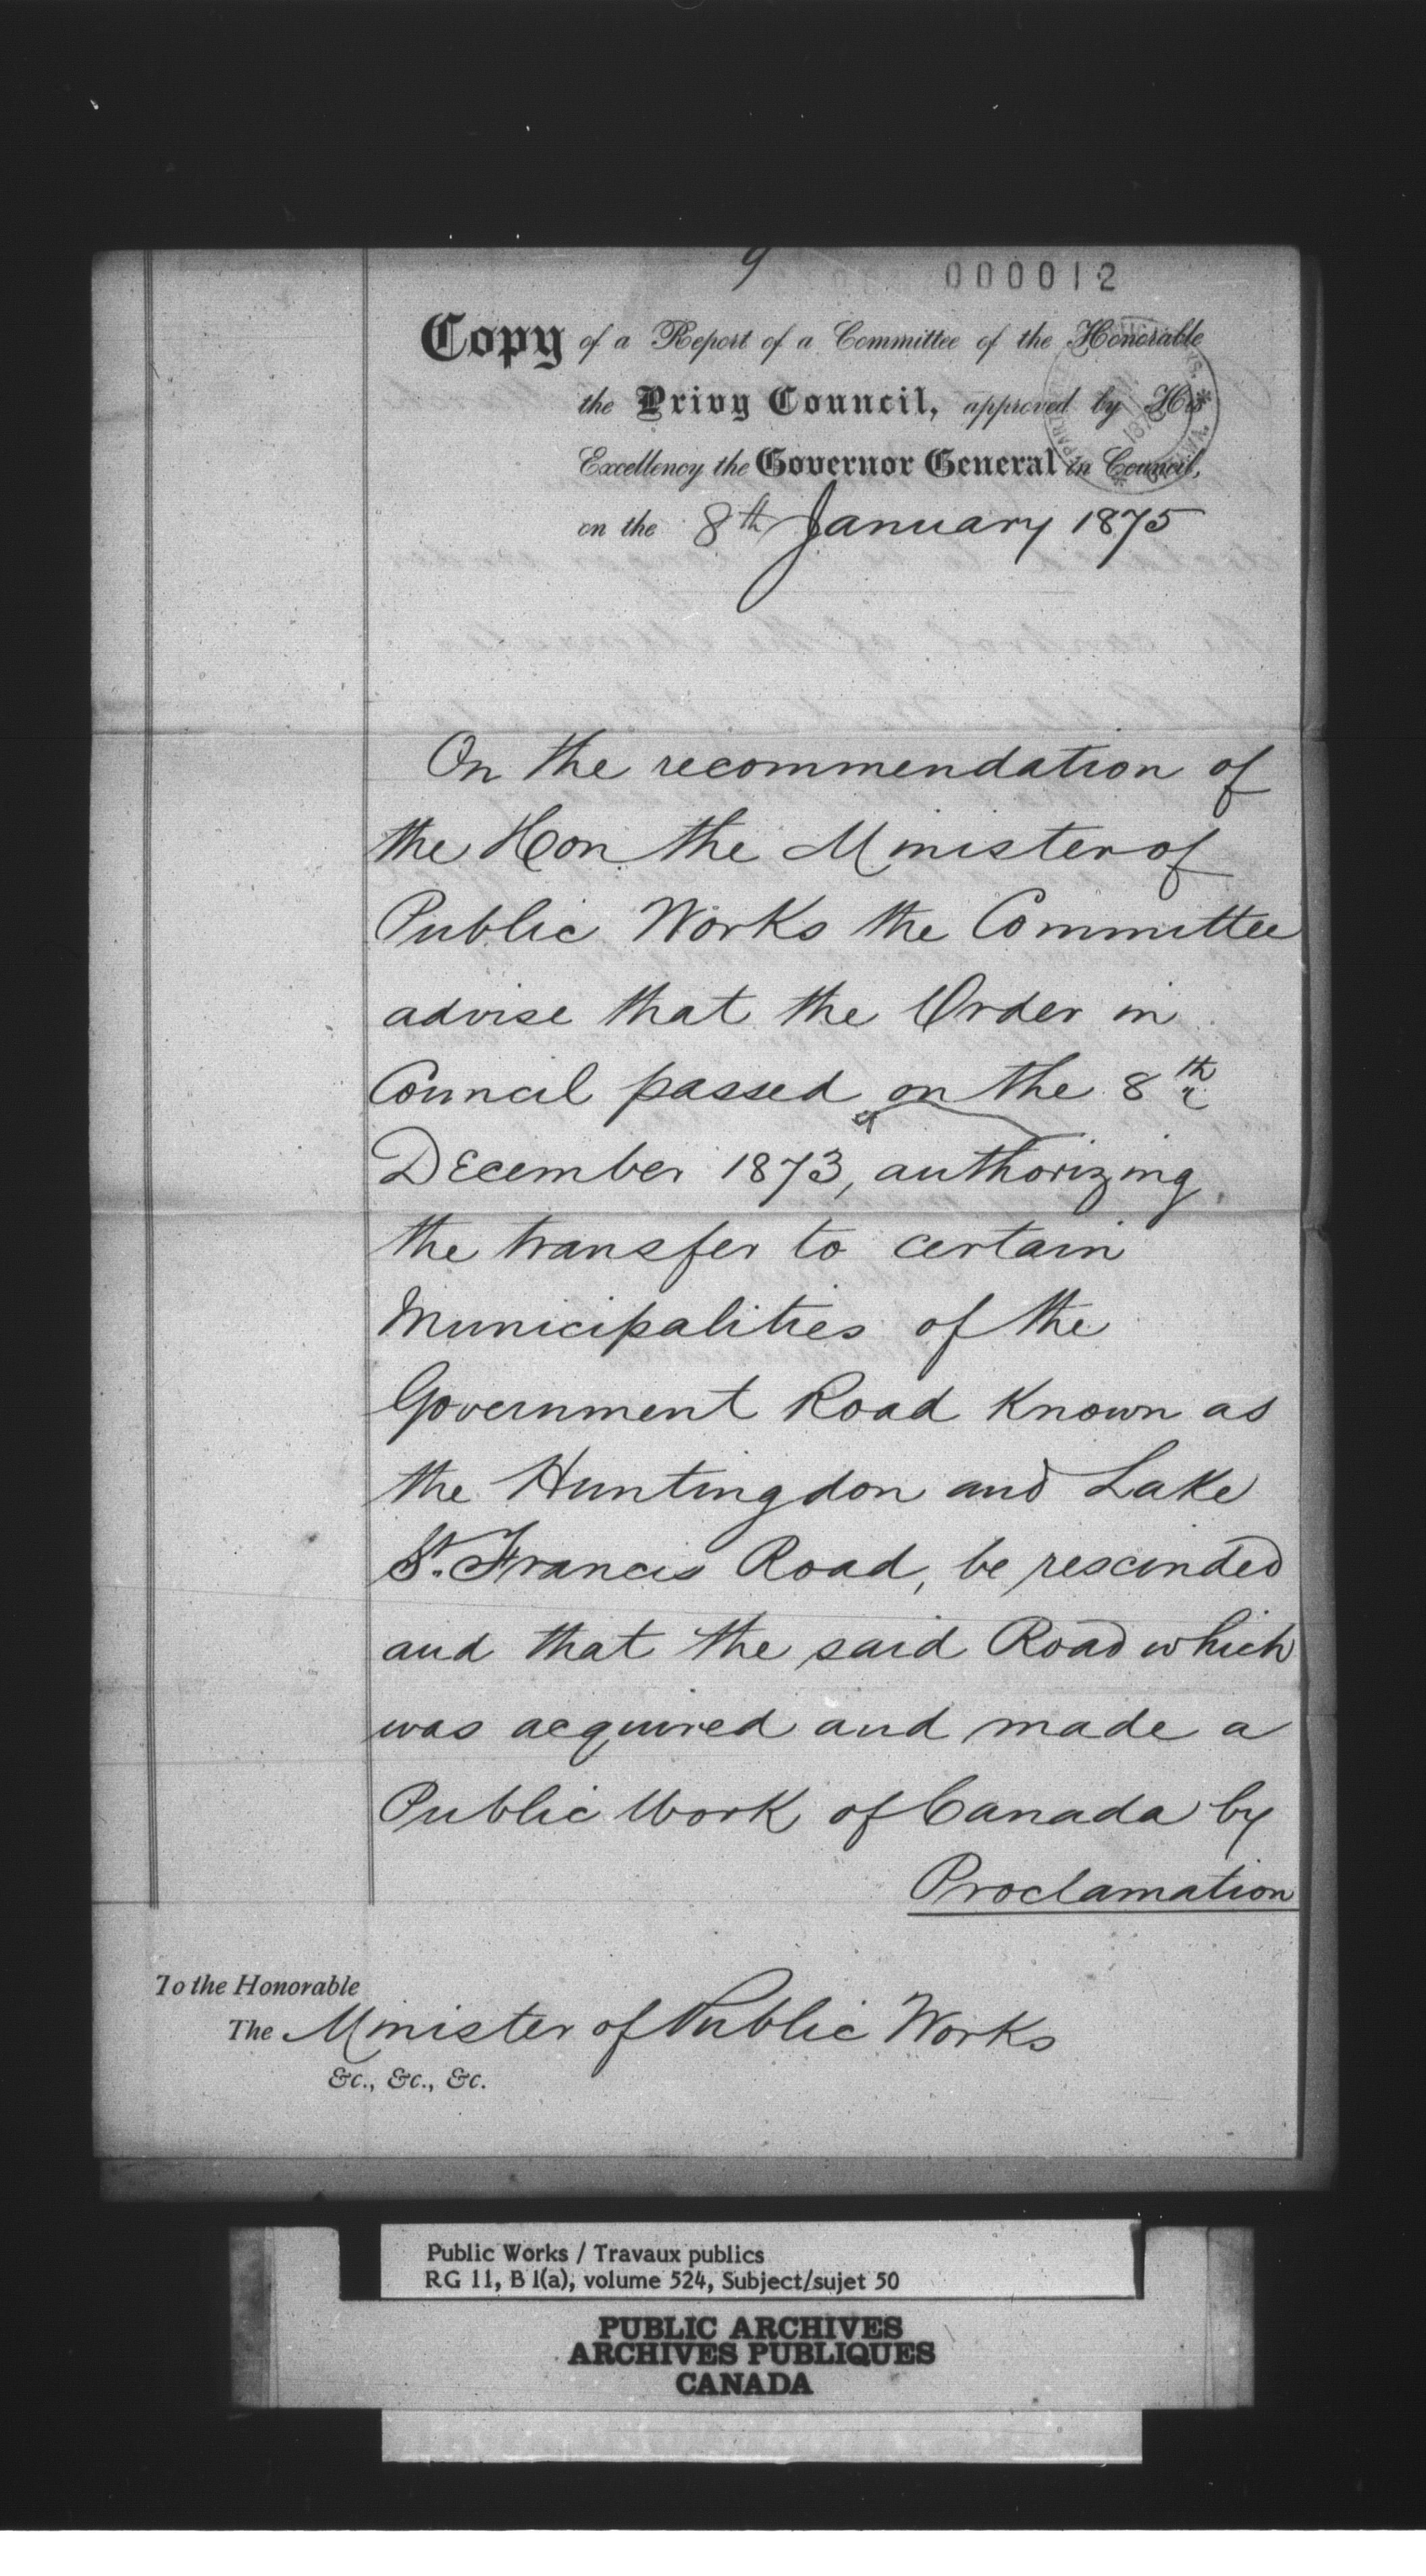 9
000012
Copy of a Report of a Committee of the Honorable
the Privy Council, approved by His
Excellency the Governor General in Council,
on the 8th January 1875
On the recommendation of
the Hon the Minister of
Public Works the Committee
advise that the Order in
Council passed on the 8th
December 1873, authorizing
the transfer to certain
Municipalities of the
Government Road Known as
the Huntingdon and Lake
St. Francis Road, be rescinded
and that the said Road which
was acquired and made a
Public Work of Canada by
Proclamation
To the Honorable
The Minister of Public Works
&c., &c., &c.
Public Works / Travaux publics
RG 11, B 1(a), volume 524, Subject/sujet 50
PUBLIC ARCHIVES
ARCHIVES PUBLIQUES
CANADA